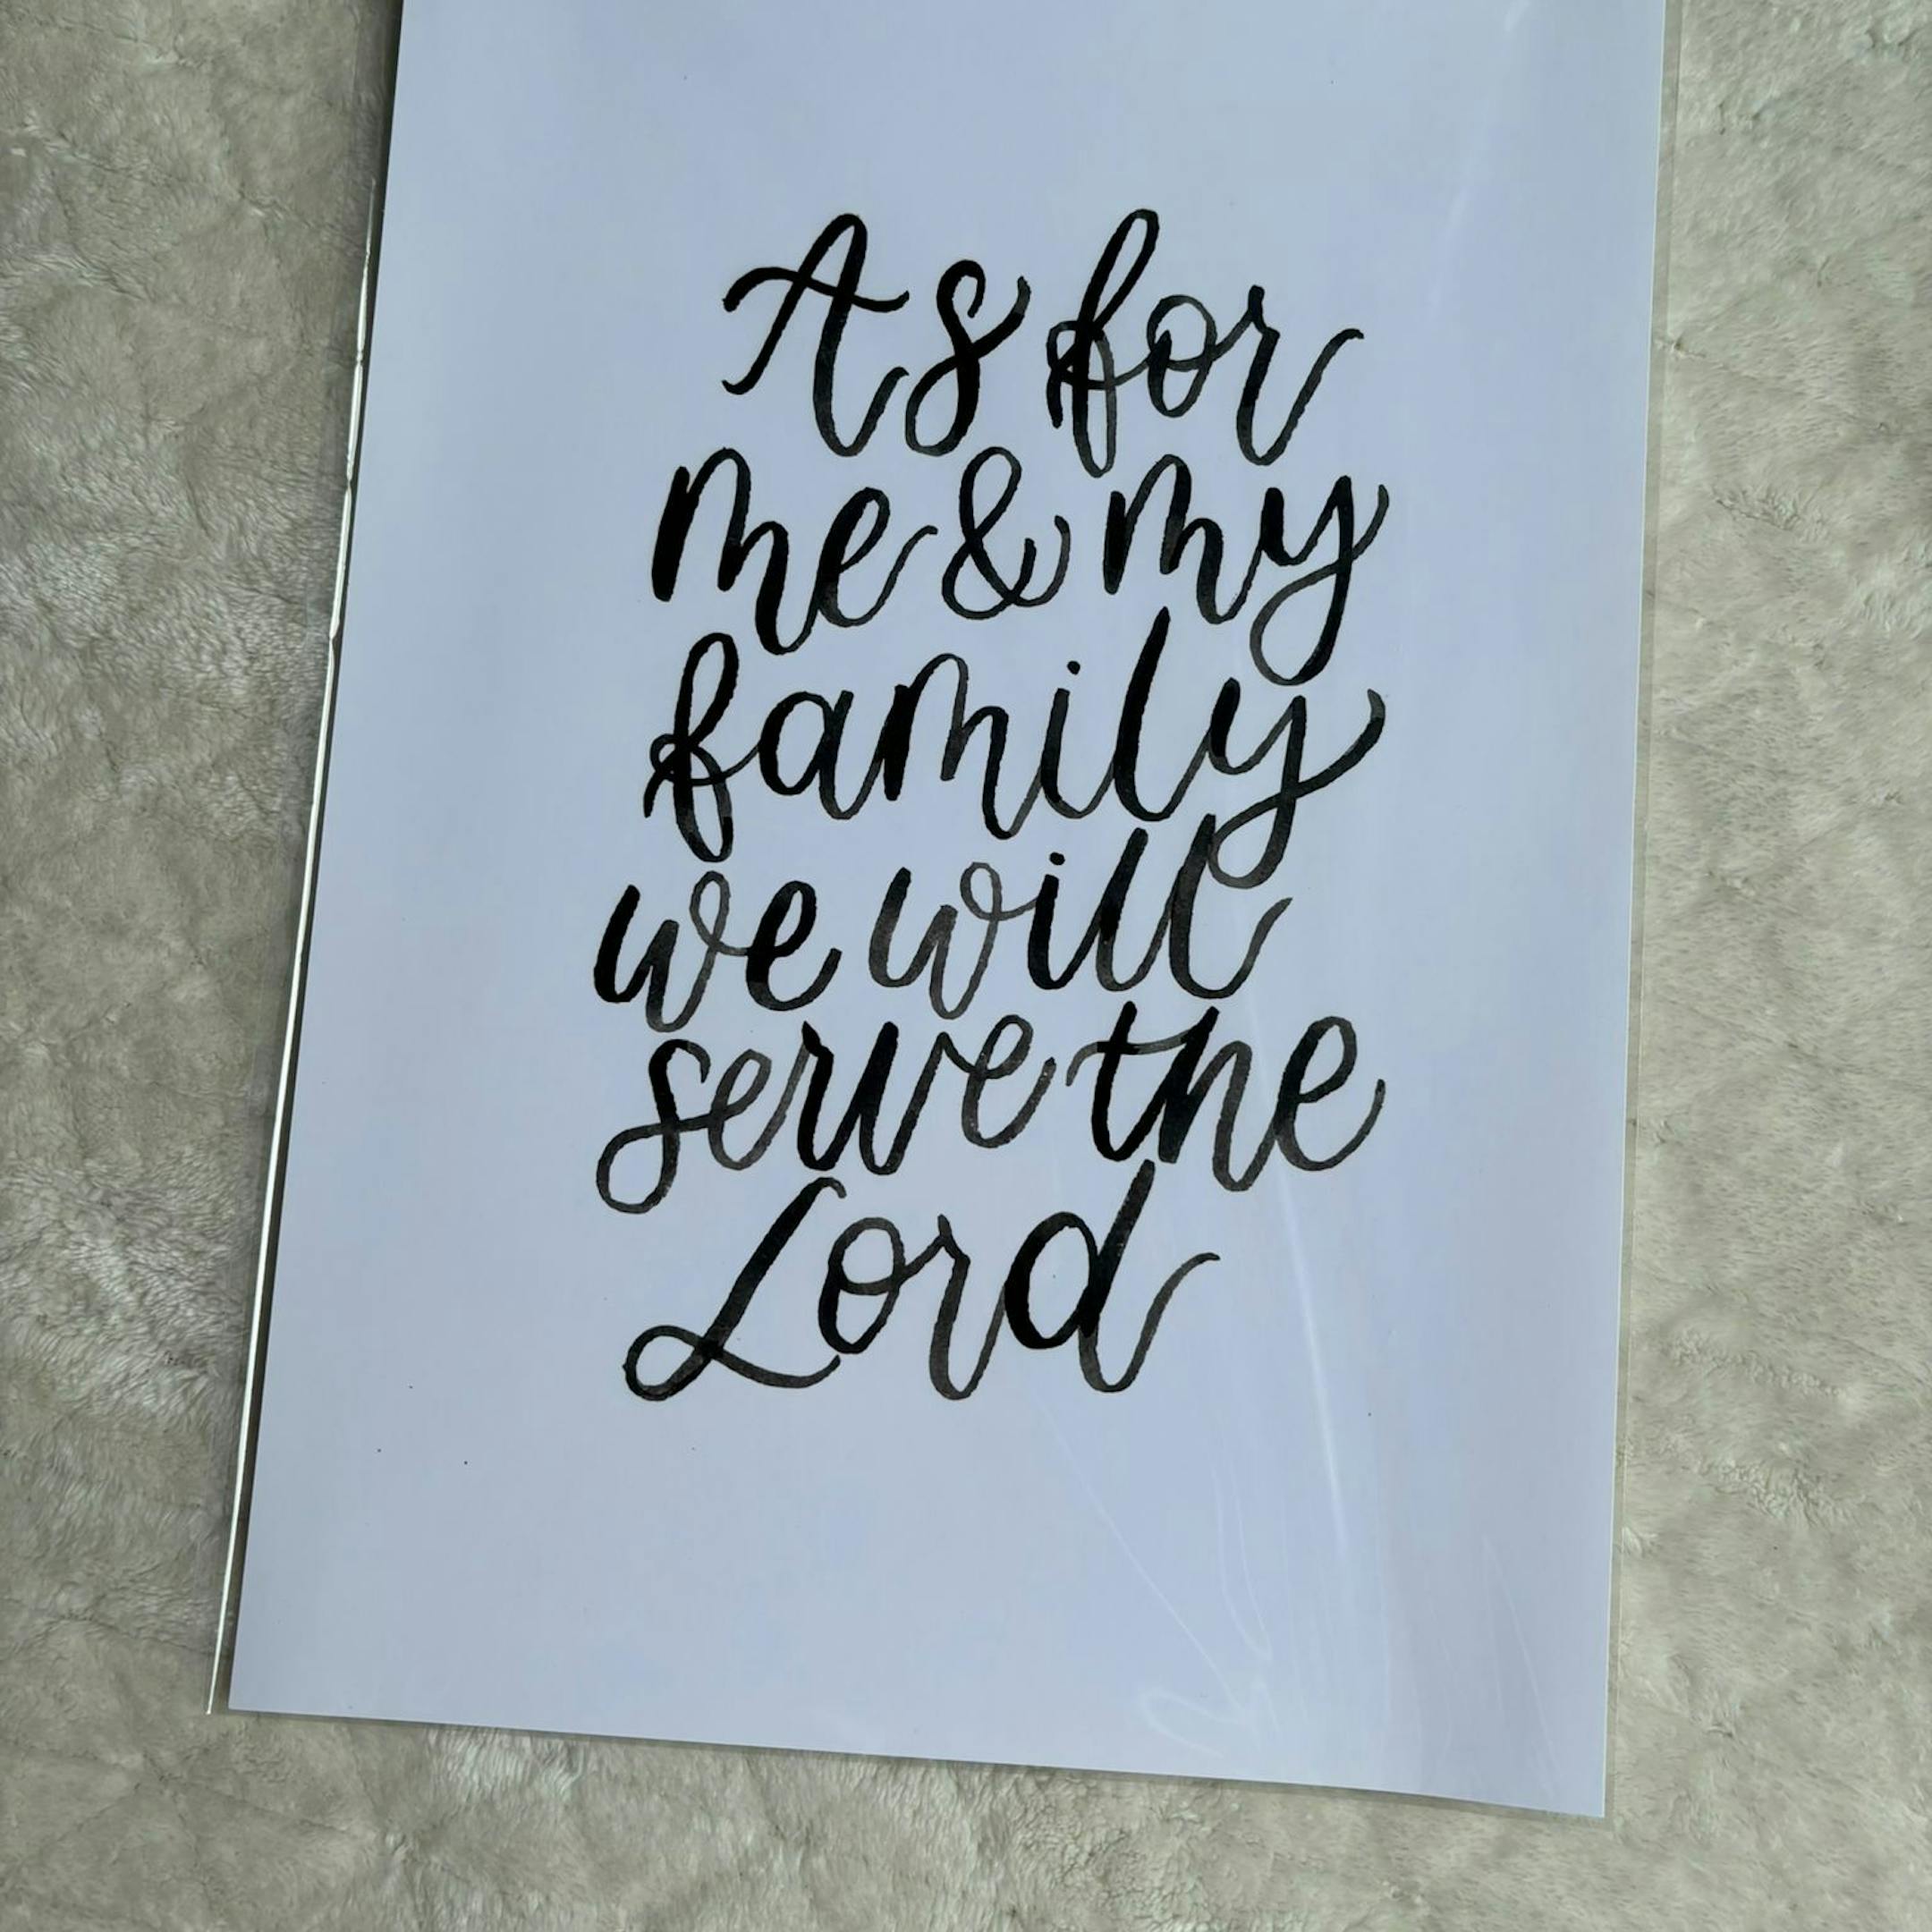 As for
me & my
family
we will
serve the
Lord